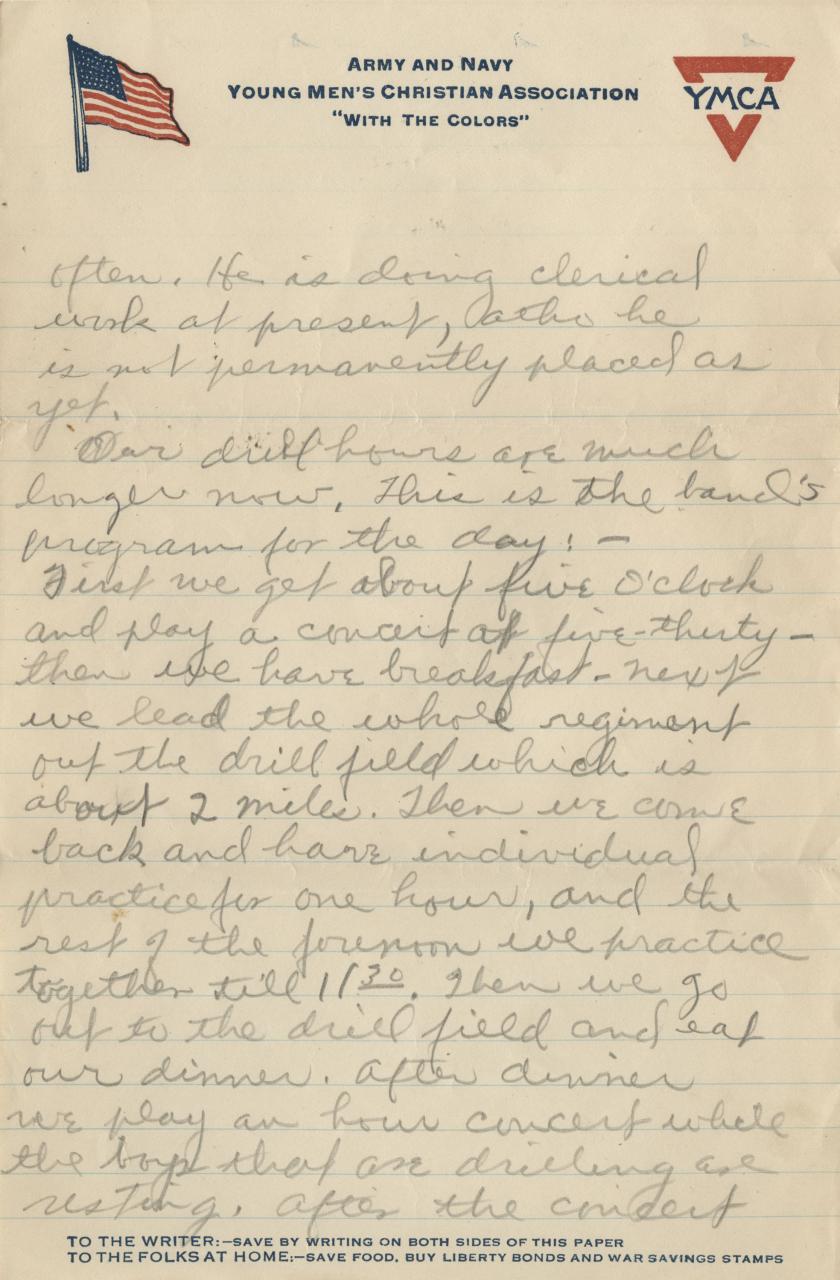 ARMY AND NAVY
YOUNG MEN'S CHRISTIAN ASSOCIATION
"WITH THE COLORS"
YMCA
often. He is doing clerical
work at present, atho he
is not permanently placed as
yet.
Our drill hours are much
longer now. This is the band's
program for the day: —
First we get about five O'clock
and play a concert at five-thirty —
then we have breakfast - next
we lead the whole regiment
out the drill field which is
about 2 miles. Then we come
back and have individual
practice for one hour, and the
rest of the forenoon we practice
together till 11 30. Then we go
out to the drill field and eat
our dinner. After dinner
we play an hour concert while
the boys that are drilling are
resting. After the concert
TO THE WRITER:—SAVE BY WRITING ON BOTH SIDES OF THIS PAPER
TO THE FOLKS AT HOME:—SAVE FOOD, BUY LIBERTY BONDS AND WAR SAVINGS STAMPS